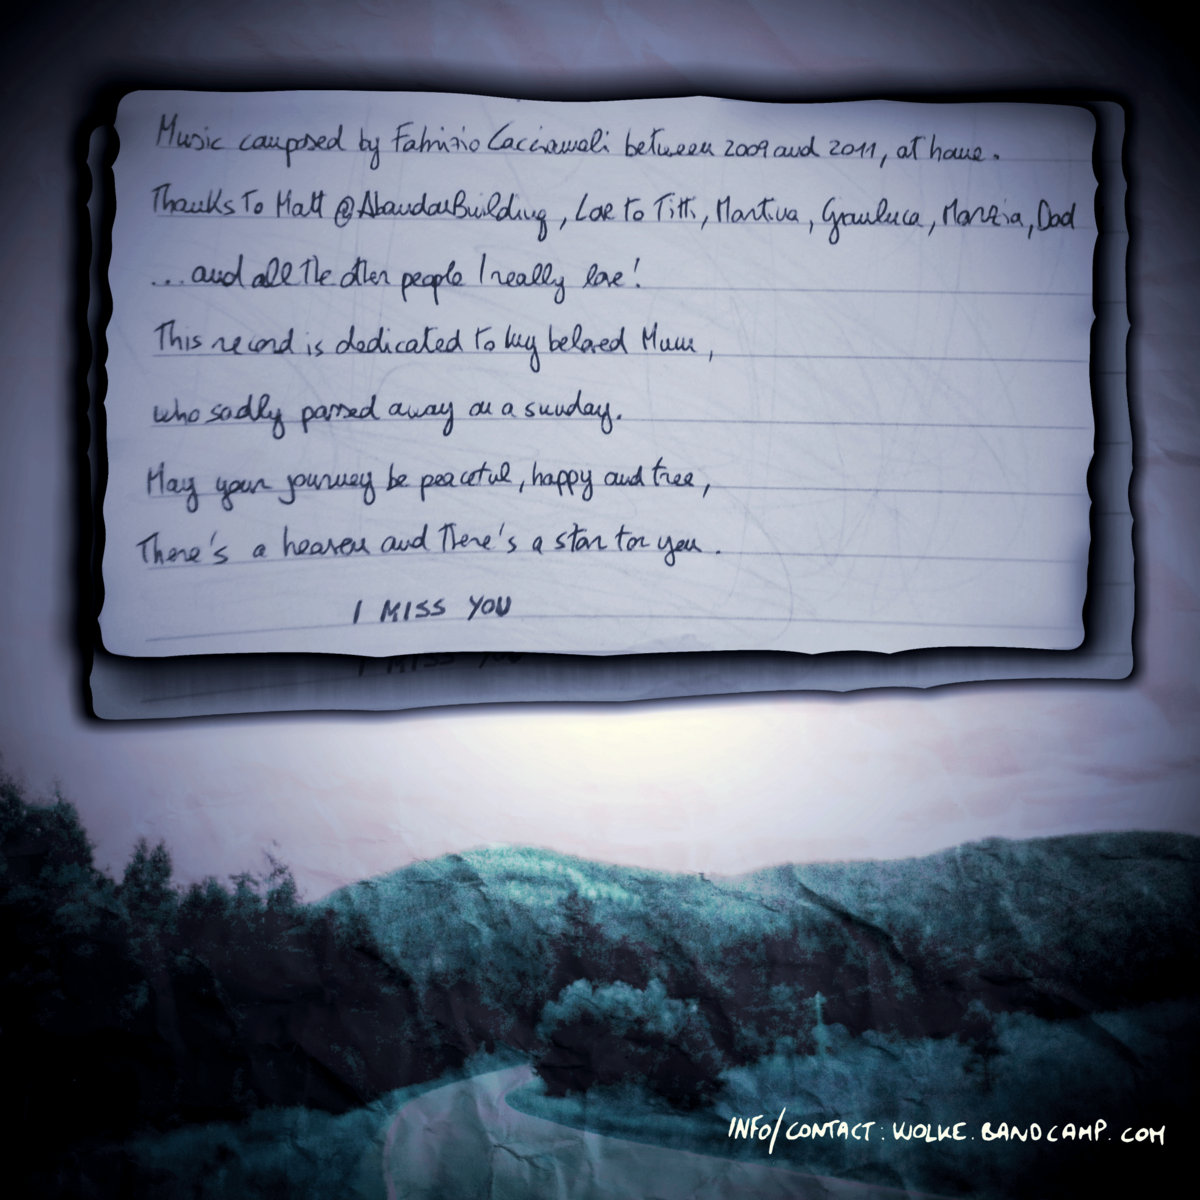 Music composed by Fabrizio Cacciamali between 2009 and 2011, at home.
Thanks to Matt @AbandonBuilding, Love to Titti, Martina, Gianluca, Marzia, Dad
...and all the other people I really love!
This record is dedicated to my beloved Mum,
who sadly passed away on a sunday.
May your journey be peaceful, happy and free,
There's a heaven and there's a star for you.
I MISS YOU
I MISS YOU
INFO/CONTACT: WOLKE.BANDCAMP.COM